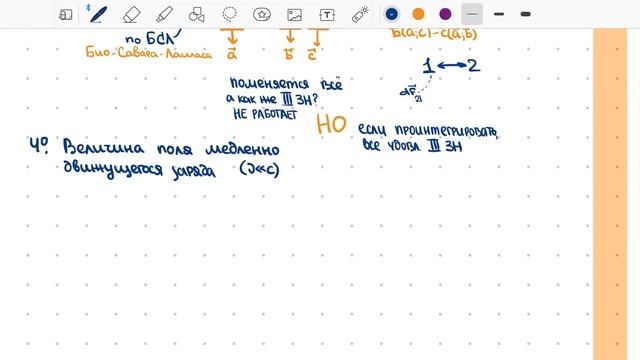 по БСЛ
Био-Савара-Лапласа
a b c
b(a;c)-c(a;b)
1 ↔ 2
dF₂₁
поменяется всё
а как же III ЗН?
НЕ РАБОТАЕТ
НО
если проинтегрировать,
все удовл III ЗН
4º. Величина поля медленно
движущегося заряда (υ<<c)